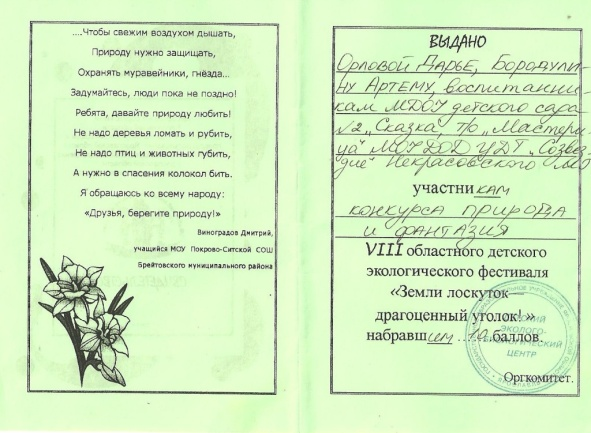 ....Чтобы свежим воздухом дышать,
Природу нужно защищать,
Охранять муравейники, гнёзда...
Задумайтесь, люди пока не поздно!
Ребята, давайте природу любить!
Не надо деревья ломать и рубить,
Не надо птиц и животных губить,
А нужно в спасения колокол бить.
Я обращаюсь ко всему народу:
«Друзья, берегите природу!»
Виноградов Дмитрий,
учащийся МОУ Покрово-Ситской СОШ
Брейтовского муниципального района
ВЫДАНО
Орловой Дарье, Бородули-
ну Артему, воспитанни-
кам МДОУ детского сада
№2 „Сказка", т/о „Мастери-
ца" МОУ ДОД ЦДТ „Созвез-
дие" Некрасовского МО
участникам
конкурса природа
и фантазия
VIII областного детского
экологического фестиваля
«Земли лоскуток—
драгоценный уголок!»
набравшим ...10 баллов.
ЭКОЛОГО-
ЦЕНТР
Оргкомитет.